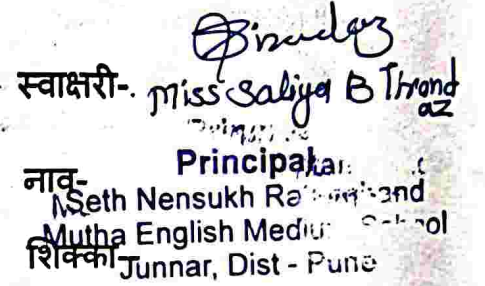 स्वाक्षरी-. Miss Saliya B
नाव- Principal
Seth Nensukh
Mutha English Medium School
शिक्का Junnar, Dist - Pune